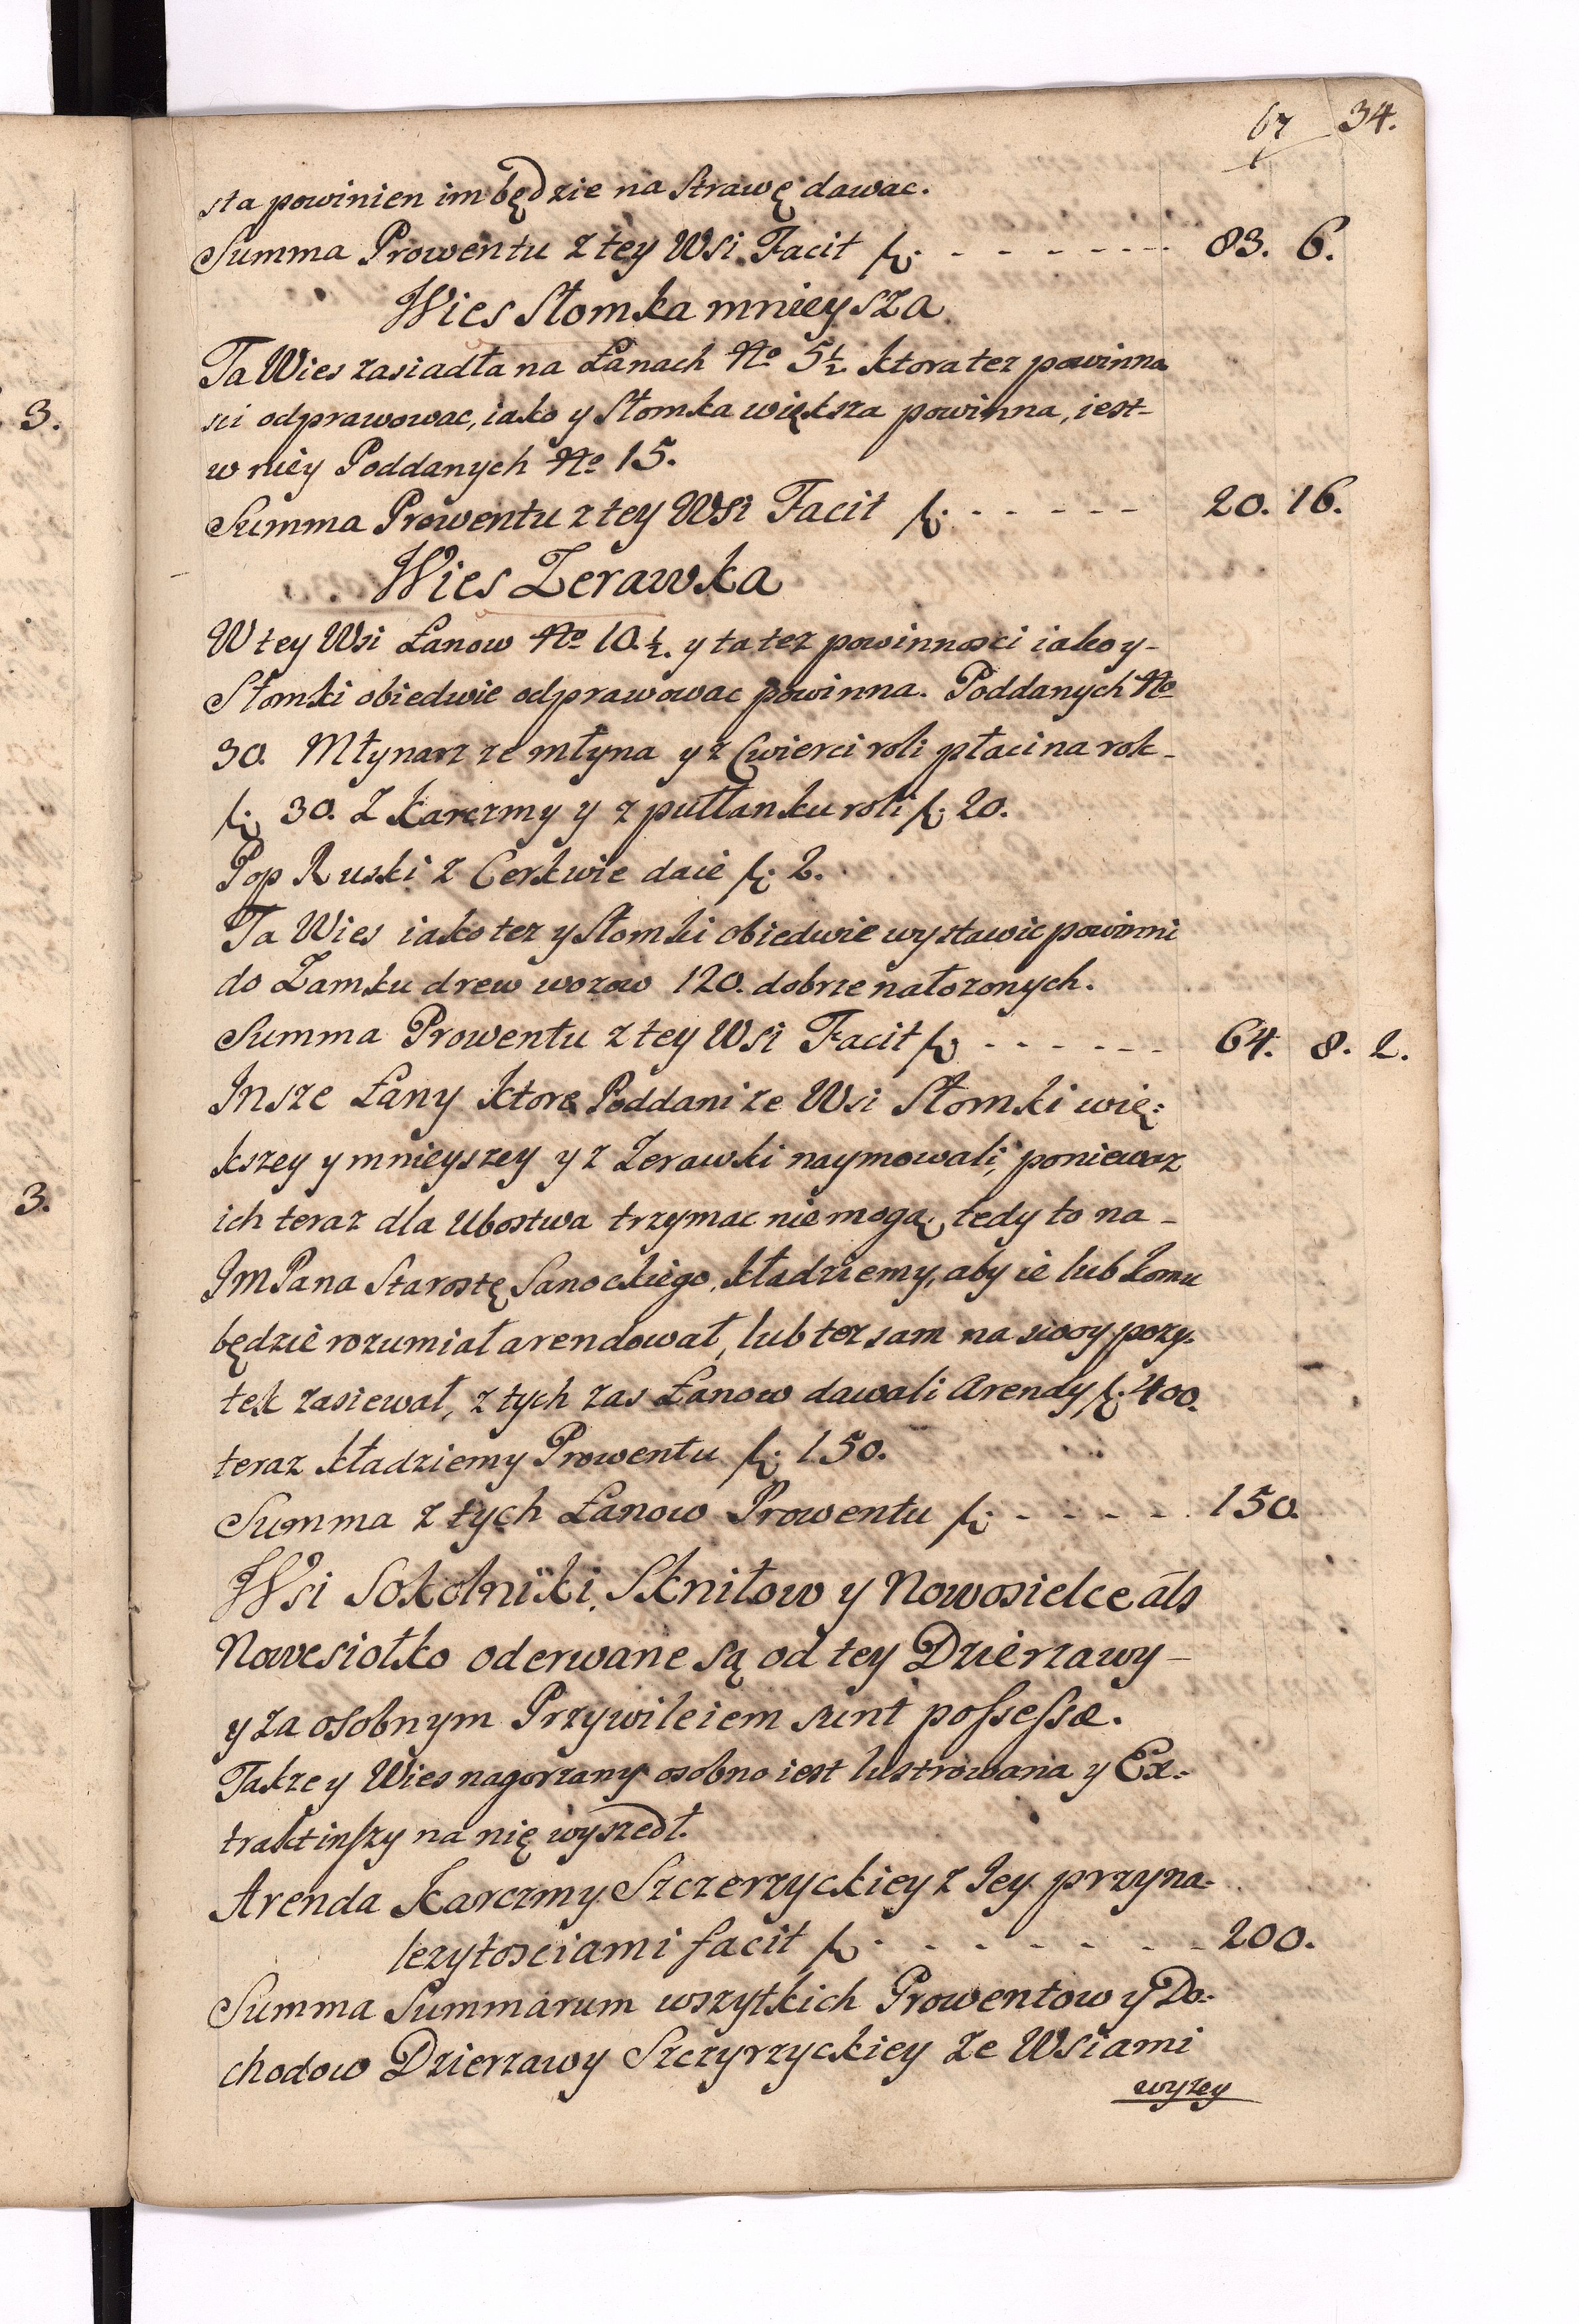 67 34.
sta powinien im będzie na Strawę dawac.
Summa Prowentu z tey Wsi Facit fl. - - - - - - 83. 6.
Wies Słomka mnieysza
Ta Wies zasiadła na Łanach No 5½ ktora tez powinno
sci odprawowac, iako y Słomka większa powinna, iest-
w niey Poddanych No 15.
Summa Prowentu z tey Wsi Facit fl. - - - - - 20. 16.
Wies Zerawka
W tey Wsi Łanow No 10.½. y ta tez powinnosci iako y-
Słomki obiedwie odprawowac powinna. Poddanych No
30. Młynarz ze młyna y z Cwierci roli płaci na rok-
fl. 30. Z karczmy y z pułłanku roli fl. 20.
Pop Ruski z Cerkwie daie fl. 2.
Ta Wies iako tez y Słomki obiedwie wystawic powinni
do Zamku drew wozow 120. dobrze nałozonych.
Summa Prowentu z tey Wsi Facit fl. - - - - - - 64. 8. 2.
Insze Łany ktore Poddani ze Wsi Słomki wię:
kszey y mnieyszey y z Zerawki naymowali, poniewaz
ich teraz dla Ubostwa trzymac nie mogą, tedy to na-
Im Pana Starostę Sanockiego, kładziemy, aby ie lub komu
będzie rozumiał arendował, lub tez sam na swoy pozy-
tek zasiewał, z tych zas Łanow dawali Arendy fl. 400.
teraz kładziemy Prowentu fl. 150.
Summa z tych Łanow Prowentu fl. - - - - - 150.
Wsi Sokolniki, Skniłow y Nowosielce als
Nowesiołko oderwane są od tey Dzierzawy-
y za osobnym Przywileiem sunt possessæ.
Takze y Wies nagorzany osobno iest lustrowana y Ex-
trakt inszy na nię wyszedł.
Arenda karczmy Szczerzyckiey z Iey przyna-
lezytosciami facit fl. - - - - - - - 200.
Summa Summarum wszytkich Prowentow y Do-
chodow Dzierzawy Szczyrzyckiey ze Wsiami
wyzey
3.
3.